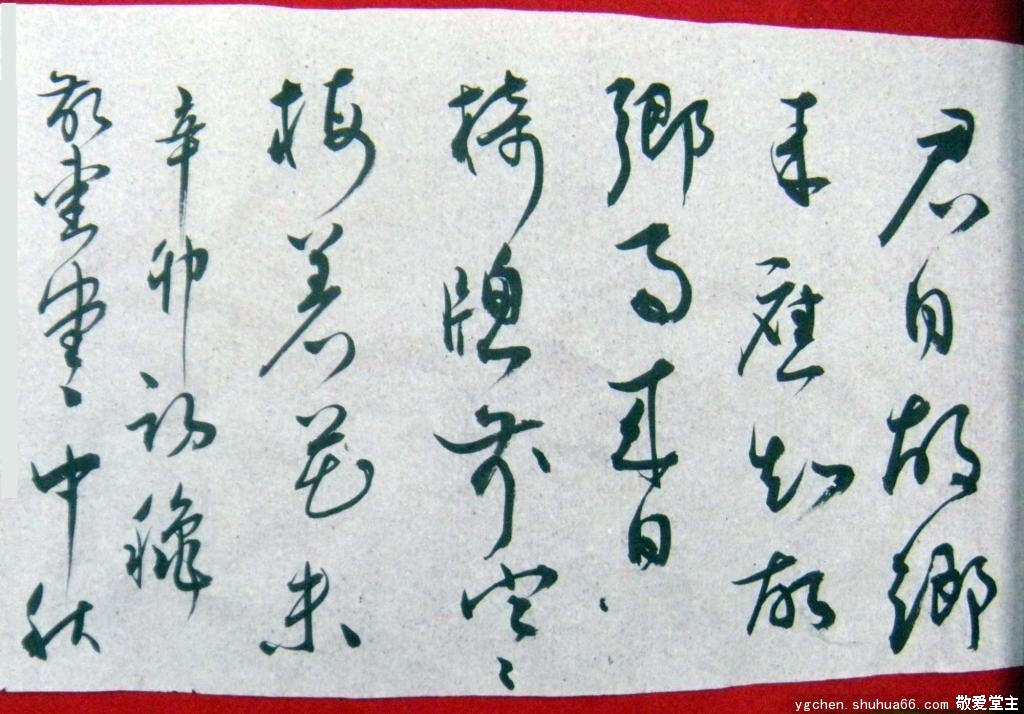 君自故鄉
来應知故
鄉事来日、
椅牕前寒、
梅着花未
辛卯初穐
敬爱堂、中秋
ygchen.shuhua66.com 敬爱堂主